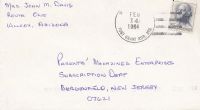 Mrs. John M. Davis
Route One
Willcox, Arizona
FEB
14
1964
Parents' Magazines Enterprises
Subscription Dept
Bergenfield, New Jersey
07621